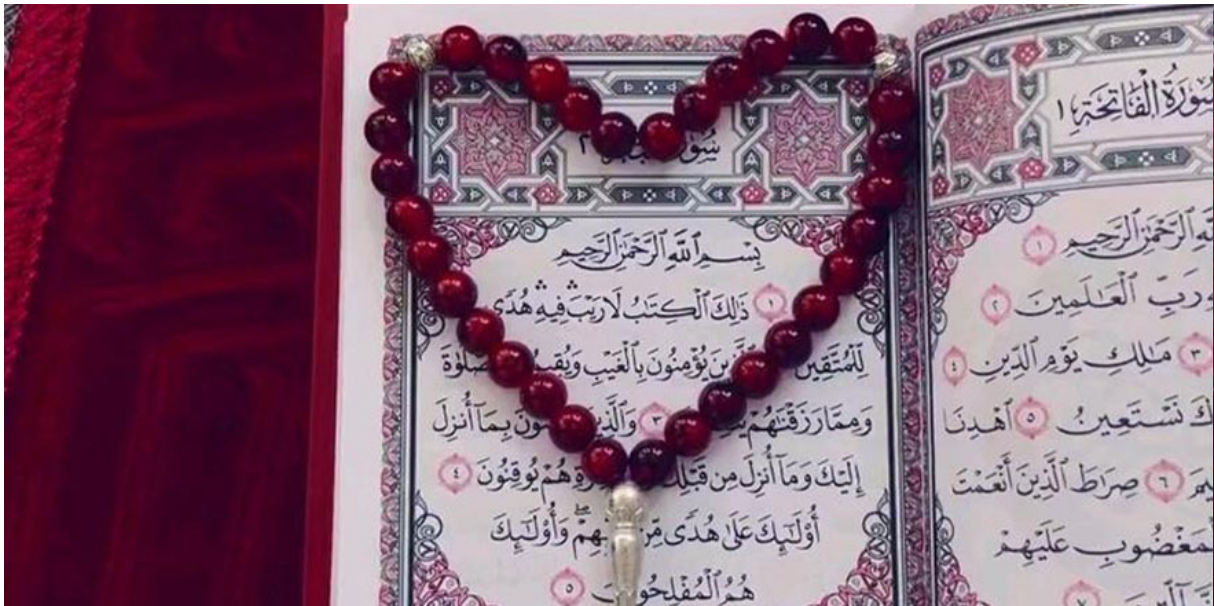 سُورَةُ الْفَاتِحَةِ ١
ٱلرَّحْمَٰنِ ٱلرَّحِيمِ ١
رَبِّ ٱلْعَٰلَمِينَ ٢
٣ مَٰلِكِ يَوْمِ ٱلدِّينِ ٤
نَسْتَعِينُ ٥ ٱهْدِنَا
٦ صِرَٰطَ ٱلَّذِينَ أَنْعَمْتَ
ٱلْمَغْضُوبِ عَلَيْهِمْ
٧
سُورَةُ ٢
بِسْمِ ٱللَّهِ ٱلرَّحْمَٰنِ ٱلرَّحِيمِ
١ ذَٰلِكَ ٱلْكِتَٰبُ لَا رَيْبَۛ فِيهِۛ هُدًى
لِّلْمُتَّقِينَ ٱلَّذِينَ يُؤْمِنُونَ بِٱلْغَيْبِ وَيُقِيمُونَ ٱلصَّلَوٰةَ
وَمِمَّا رَزَقْنَٰهُمْ ٣ وَٱلَّذِينَ يُؤْمِنُونَ بِمَآ أُنزِلَ
إِلَيْكَ وَمَآ أُنزِلَ مِن قَبْلِكَ هُمْ يُوقِنُونَ ٤
أُو۟لَٰٓئِكَ عَلَىٰ هُدًى مِّن رَّبِّهِمْۖ وَأُو۟لَٰٓئِكَ
هُمُ ٱلْمُفْلِحُونَ ٥